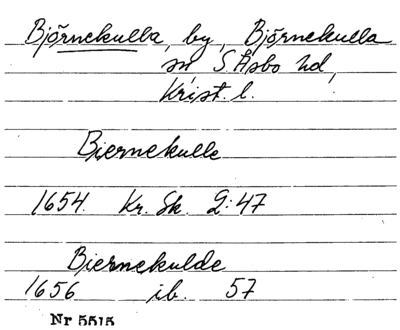 Björnekulla, by, Björnekulla
sn S. Åsbo hd,
Krist. l.
Biernekulle
1654. Kr. Sk. 2:47
Biernekulde
1656 ib. 57
Nr 5515